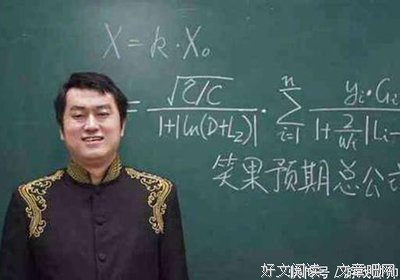 X = k · X₀
= √(τ/C) / (1+|ln(D+L₂)|) · Σ_{i=1}^{n} yᵢ·Gᵢ / (1+ 2/Wᵢ |Lᵢ-
笑果预期总公式
好文阅读
文章吧网